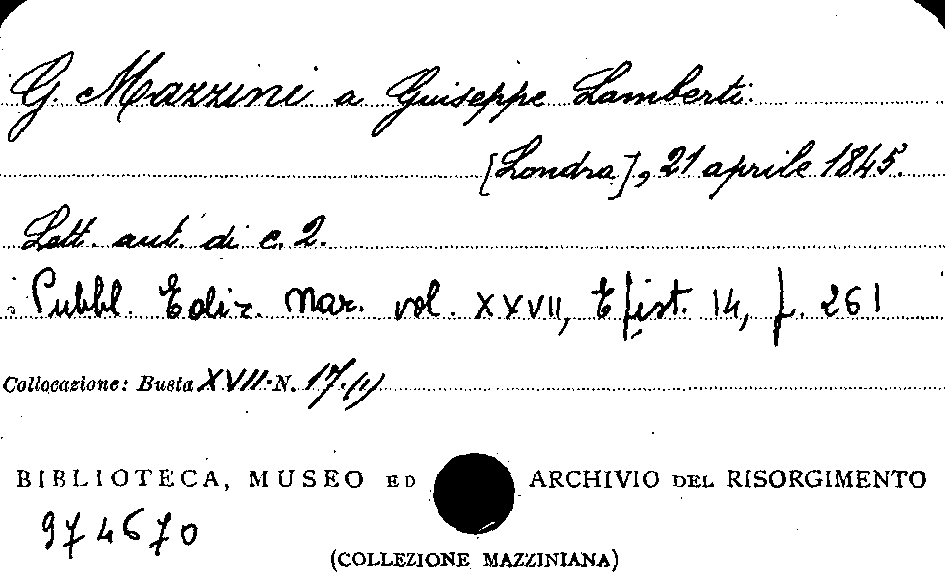 G. Mazzini a Giuseppe Lamberti.
[Londra], 21 aprile 1845.
Lett. aut. di c. 2.
Pubbl. Ediz. Naz. vol. XXVII, Epist. 14, p. 261
Collocazione: Busta XVII N. 17 (1)
BIBLIOTECA, MUSEO ED ARCHIVIO DEL RISORGIMENTO
974670
(COLLEZIONE MAZZINIANA)